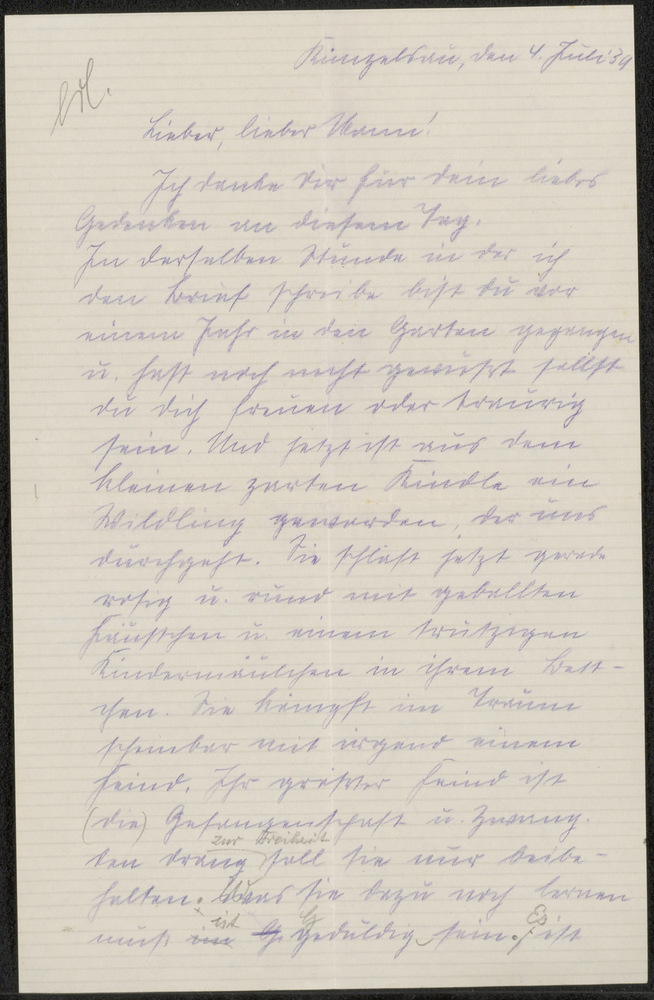 Künzelsau, den 4. Juli 39
Lieber, lieber Mann!
Ich danke Dir für dein liebes
Gedenken an diesem Tag.
In derselben Stunde in der ich
den Brief schreibe bist du vor
einem Jahr in den Garten gegangen
u. hast noch nicht gewußt sollst
du dich freuen oder traurig
sein. Und jetzt ist aus dem
kleinen zarten Kindle ein
Wildling geworden, der uns
durchgeht. Sie schläft jetzt gerade
rosig u. rund mit geballten
Fäustchen u. einem trutzigen
Kindermäulchen in ihrem Bett-
chen. Sie kämpft im Traum
scheinbar mit irgend einem
Feind. Ihr größter Feind ist
(die) Gefangenschaft u. Zwang.
Den Drang zur Freiheit soll sie nur beibe-
halten. Was sie dazu noch lernen
muß ist Geduldig sein. Es ist